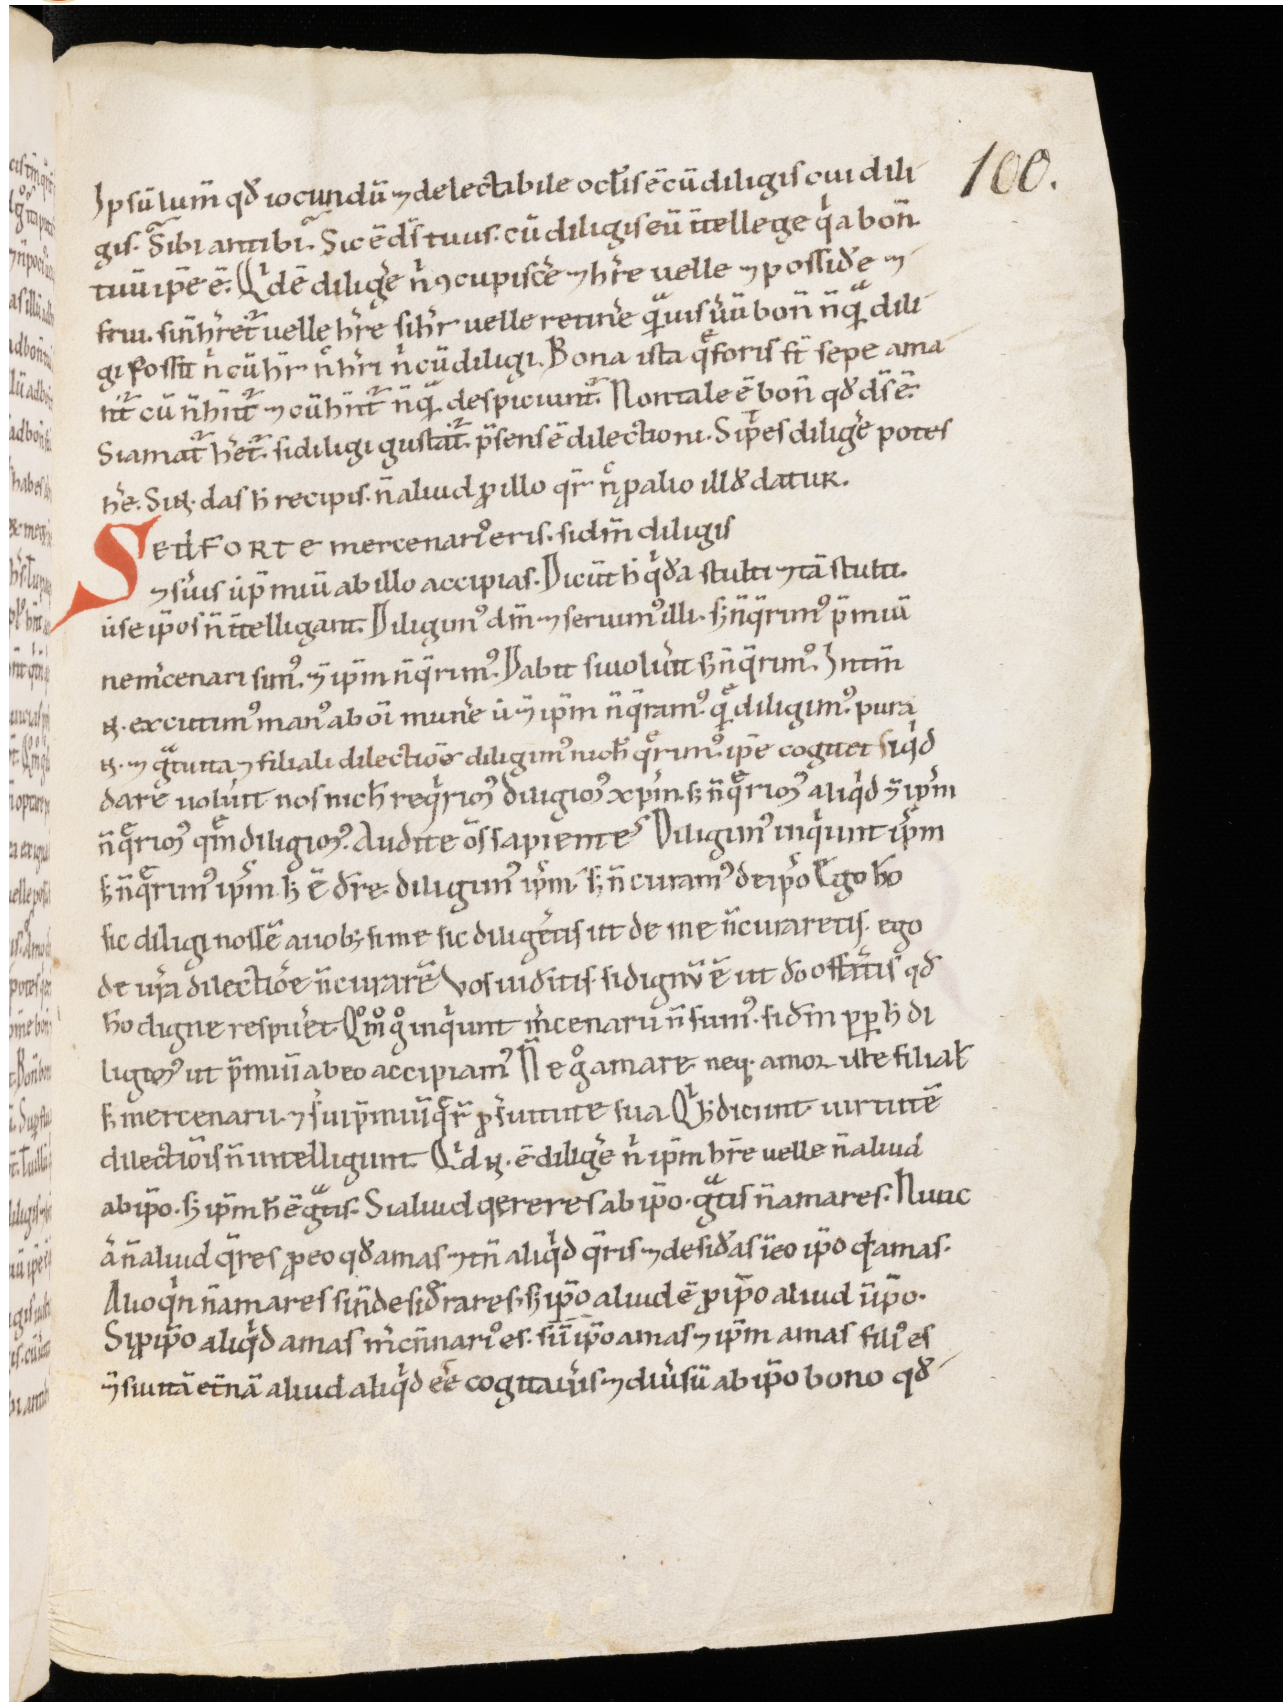 100.
Ipsū lum̄ qđ iocundū ⁊ delectabile ocłis ē cū diligis cui dili
gis. S̃ ibi an tibi. Sic ē ds̄ tuus. cū diligis eū ītellege q̇a bon̄
tuū ip̄e ē. Qͥd ē dilig̾e n̾ ꝯcupisc̾e ⁊ hr̄e uelle ⁊ possid̾e ⁊
frui. si n̄ hr̄et̃ uelle hr̄e si hr̄ uelle retin̾e qͣuis ūū bon̄ n̄ qͣ dili
gi possit n̾ cū hr̄ n̄ hr̄i n̾ cū diligi. Bona ista q̄ foris st̄ sepe ama
nt̃ cū n̄ hn̄t̃ ⁊ cū hn̄t̃ n̄ qͣ despiciunt̃. Non tale ē bon̄ qđ ds̄ ē.
Si amat̃ het̃. si diligi gustat̃. p̄sens ē dilectioni. Si p̄es dilig̾e potes
hr̄e. Si ꝗ. das ħ recipis. n̄ aliud ꝓ illo qr̄ n̄ ꝓ alio illđ datur.
Sed forte mercenariꝰ eris. si dm̄ diligis
⁊ s̾uis ut p̄miū ab illo accipias. Dicūt ħ q̇đa stulti ⁊ tā stulti.
ut se ip̄os n̄ ītelligant. Diligimꝰ dm̄ ⁊ seruimꝰ illi. sꝫ n̄ q̄rimꝰ p̄miū
ne m̾cenarii simꝰ. ⁊ ip̄m n̄ q̄rimꝰ. Dabit si uolu̾it sꝫ n̄ q̄rimꝰ. In tm̄
ꝗ. excutimꝰ manꝰ ab oī mun̾e ut ⁊ ip̄m n̄ q̄ramꝰ. qͤ diligimꝰ. pura
ꝗ. ⁊ gͣtuita ⁊ filiali dilectiōe diligimꝰ nich̄ q̄rimꝰ. ip̄e cogitet siq̇d
dare uolu̾it nos nich̄ req̇rimꝰ diligimꝰ xp̄m. sꝫ n̄ q̄rimꝰ aliq̇d ⁊ ip̄m
n̄ q̄rimꝰ qͤm diligimꝰ. Audite o͞s sapientes Diligimꝰ inq̇unt ip̄m
sꝫ n̄ q̄rimꝰ ip̄m. ħ ē dr̄e. diligimꝰ ip̄m sꝫ n̄ curamꝰ de ip̄o Ego ho͞
sic diligi nollē a uobꝫ si me sic diligr̄etis ut de me n̄ curaretis. ego
de ur̄a dilectiōe n̄ curarē Vos uid̾itis. si dignū ē ut dō offr̄atis qđ
ho͞ digne respu̾et Qͦm gͦ inq̇unt m̾cenarii n̄ sumꝰ. si dm̄ ꝓpꝑ ħ di
ligimꝰ ut p̄miū ab eo accipiamꝰ Ne gͦ amare neqꝫ. amor iste filial̄
sꝫ mercenarii. ⁊ sui p̄miū qr̄ ꝓ s̾uitute sua Qͥ ħ dicunt uirtutē
dilectiōis n̄ intelligunt. Qͥd ꝗ. ē dilig̾e n̾ ip̄m hr̄e uelle n̄ aliud
ab ip̄o. sꝫ ip̄m ħ ē gͣtis. Si aliud qereres ab ip̄o. gͣtis n̄ amares. Nunc
ā n̄ aliud q̄res ꝓ eo qđ amas ⁊ tn̄ aliq̇d q̄ris ⁊ desid̾as ī eo ip̄o qđ amas.
Alioq̇n n̄ amares si n̄ desid̾rares. sꝫ ip̄o aliud ē ꝓ ip̄o aliud ī ip̄o.
Si ꝓ ip̄o aliq̇d amas m̾cennariꝰ es. si ī ip̄o amas ⁊ ip̄m amas filiꝰ es
⁊ si uitā et̄nā aliud aliq̇d ee̾ cogitau̾is ⁊ diu̾sū ab ip̄o bono qđ